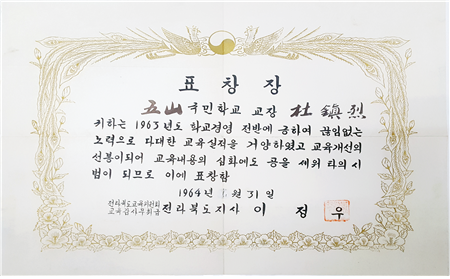 표창장
五山국민학교 교장 杜鎭烈
귀하는 1963년도 학교경영 전반에 긍하여 끊임없는
노력으로 다대한 교육실적을 거양하였고 교육개선의
선봉이되어 교육내용의 심화에도 공을 세워 타의 시
범이 되므로 이에 표창함
1964년 월 31일
전라북도교육위원회
교육감사무취급
전라북도지사 이 정 우